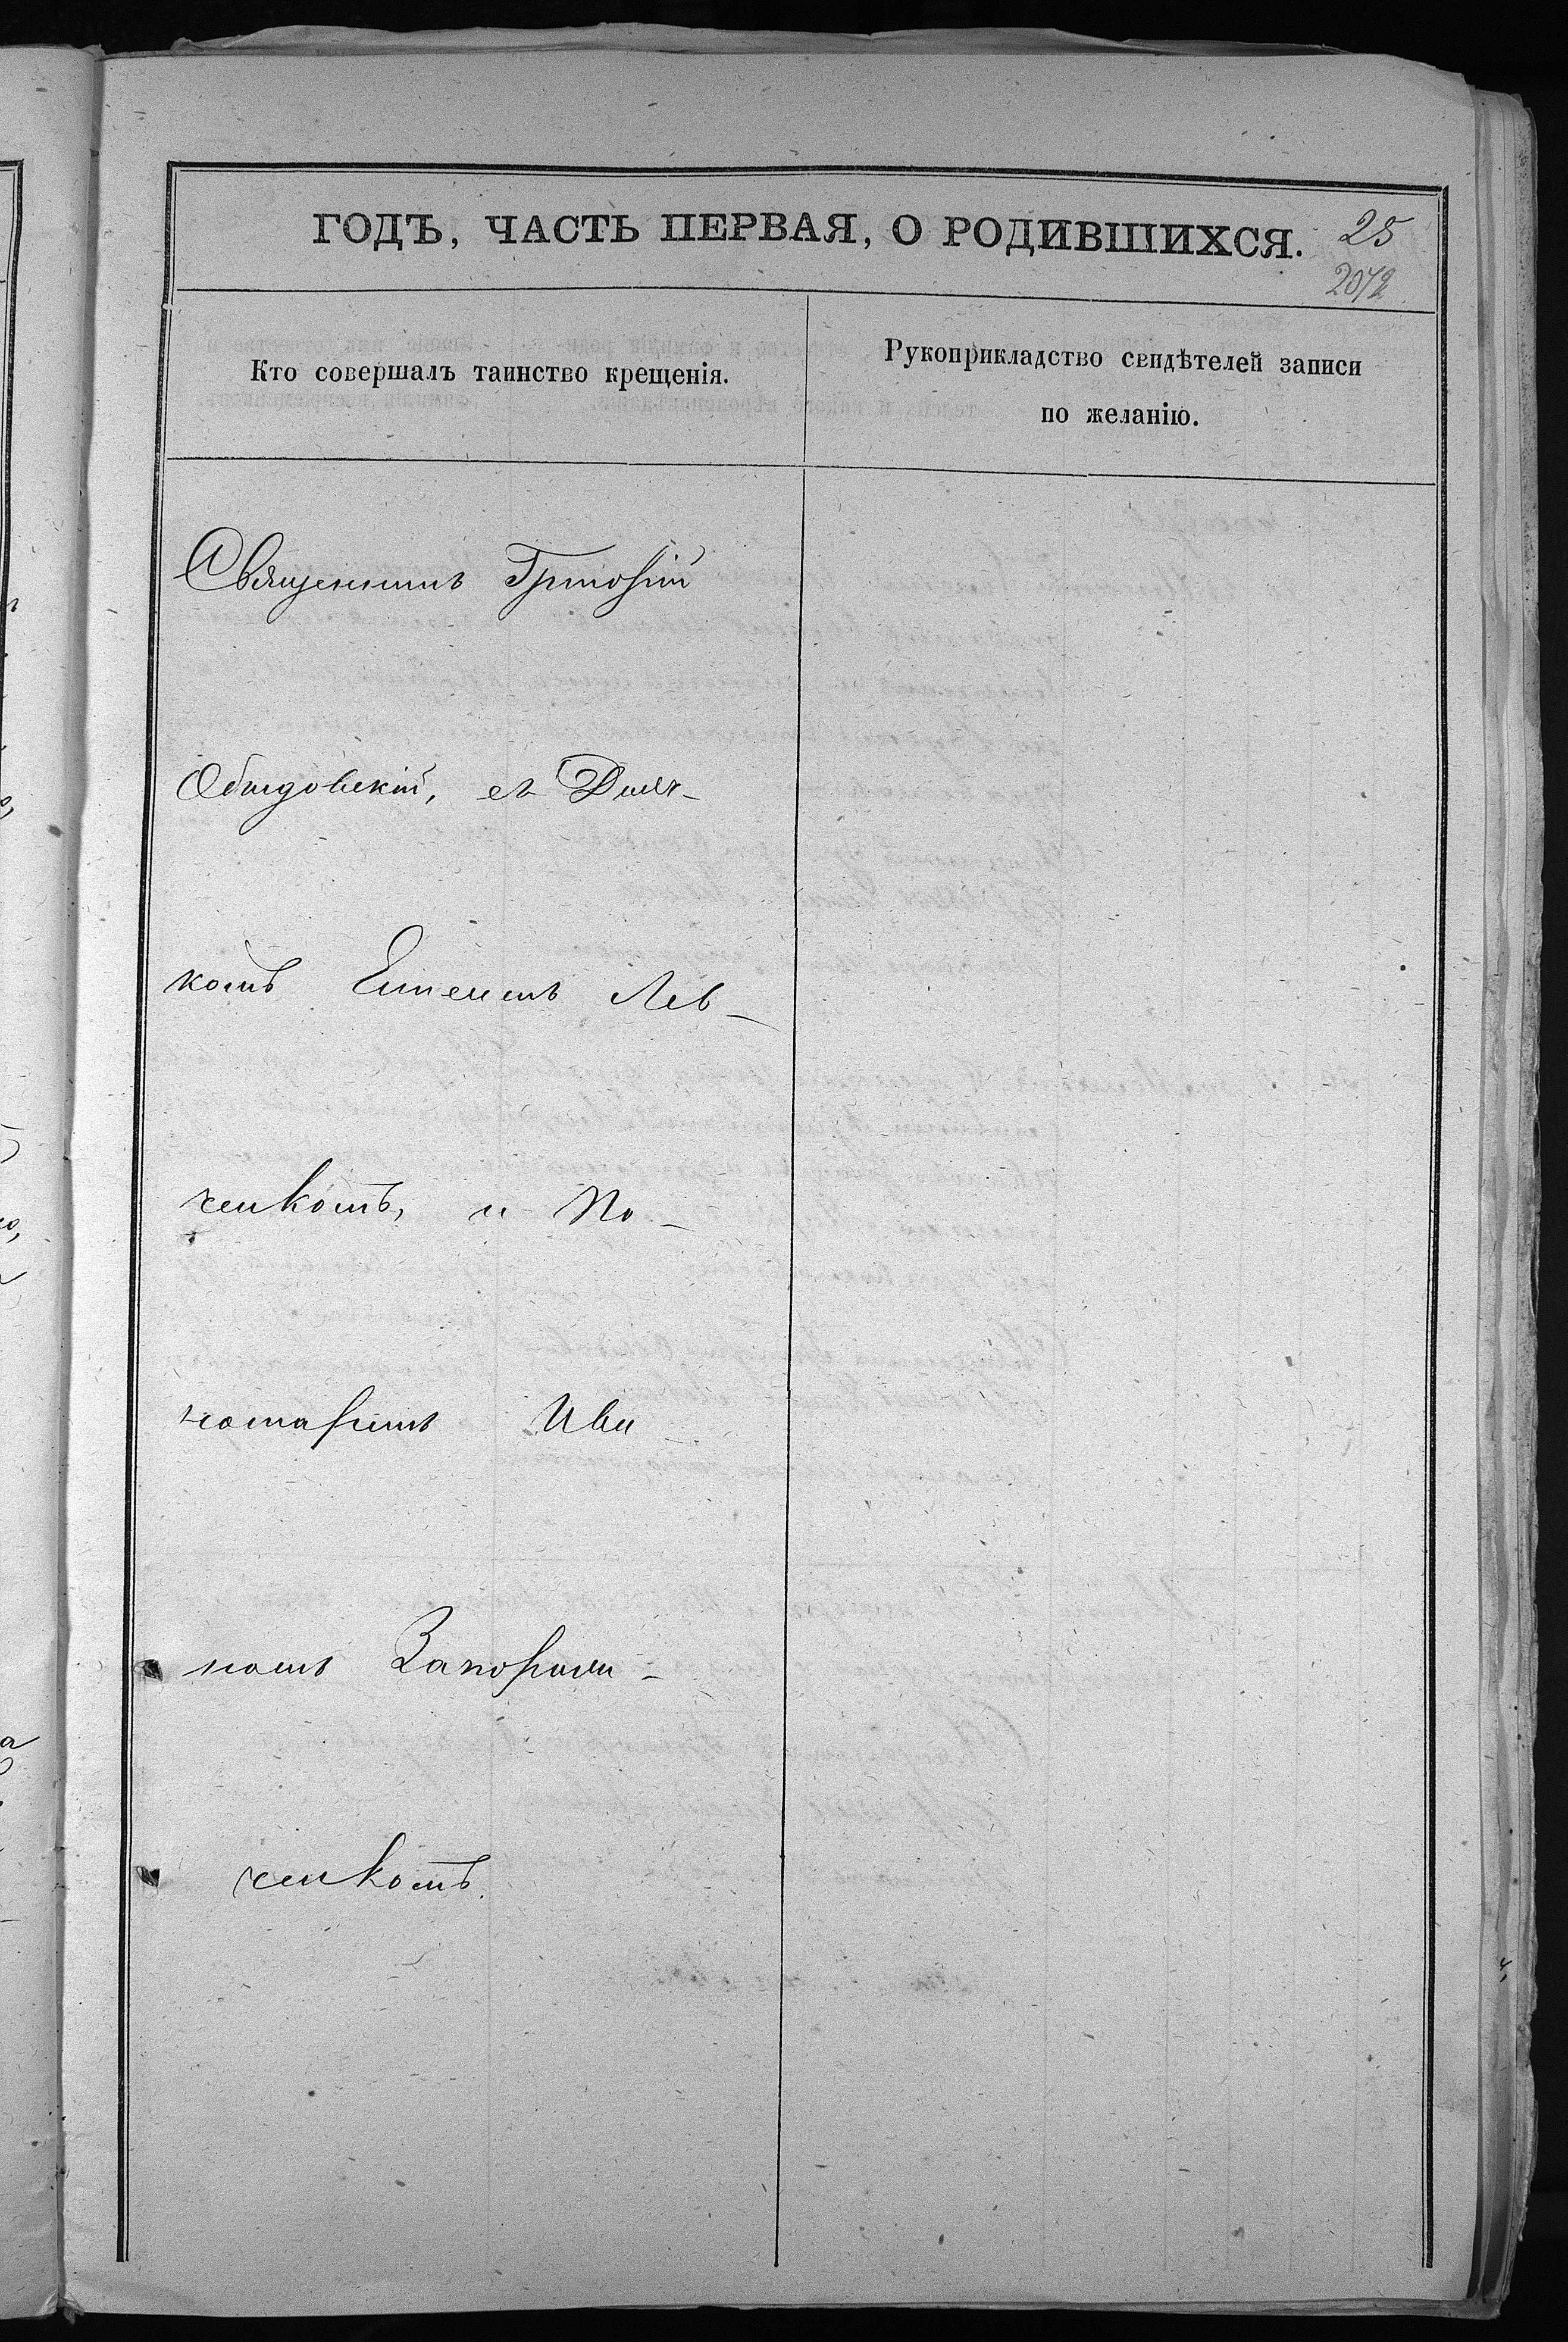 ГОДЪ, ЧАСТЬ ПЕРВАЯ, О РОДИВШИХСЯ.
25
2072
Кто совершалъ таинство крещенія.
Рукоприкладство свидѣтелей записи
по желанію.
Священникъ Григорій
Обидовскій, съ Дья-
комъ Евгеніемъ Лев-
ченкомъ, и По-
номаремъ Ива
номъ Запорожи-
ченкомъ.